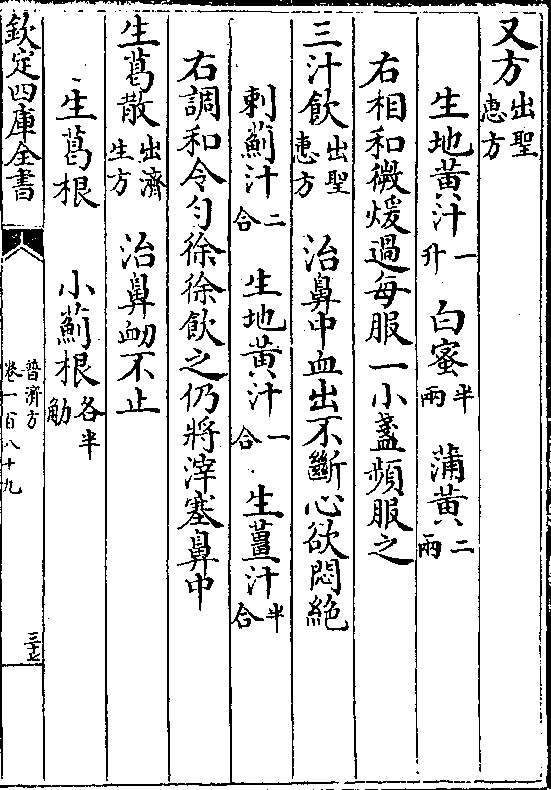 又方出聖惠方
生地黄汁一升 白蜜半兩 蒲黄二兩
右相和微煖過每服一小盞頻服之
三汁飲出聖惠方 治鼻中血出不斷心欲悶絶
刺薊汁二合 生地黄汁一合 生薑汁半合
右調和令勻徐徐飲之仍將滓塞鼻中
生葛散出濟生方 治鼻衂不止
生葛根 小薊根各半觔
欽定四庫全書 普濟方卷一百八十九 三十七